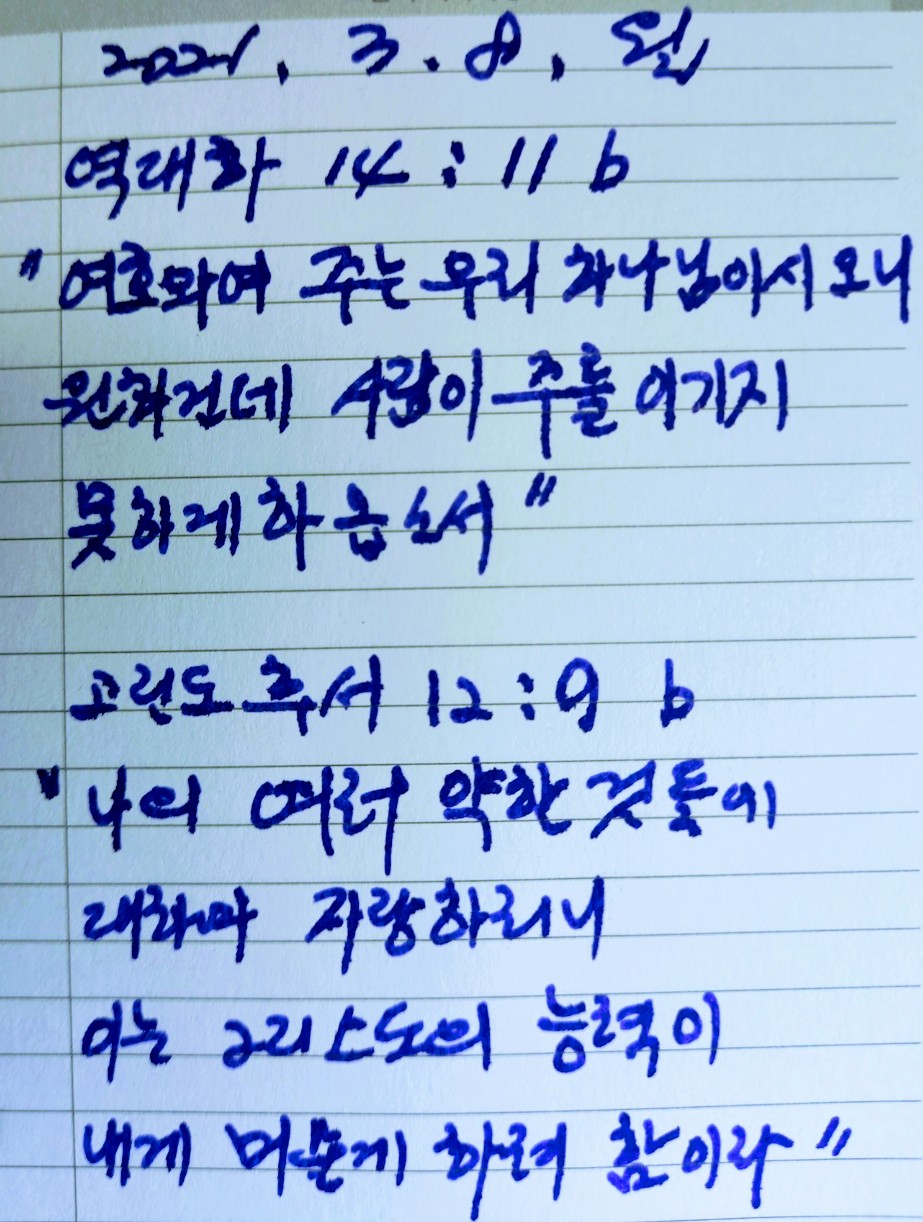 2021. 3. 8, 월
역대하 14 : 11 b
"여호와여 주는 우리 하나님이시오니
원하건데 사람이 주를 이기지
못하게 하옵소서"
고린도후서 12 : 9 b
"나의 여러 약한 것들에
대하여 자랑하리니
이는 그리스도의 능력이
내게 머물게 하려 함이라"